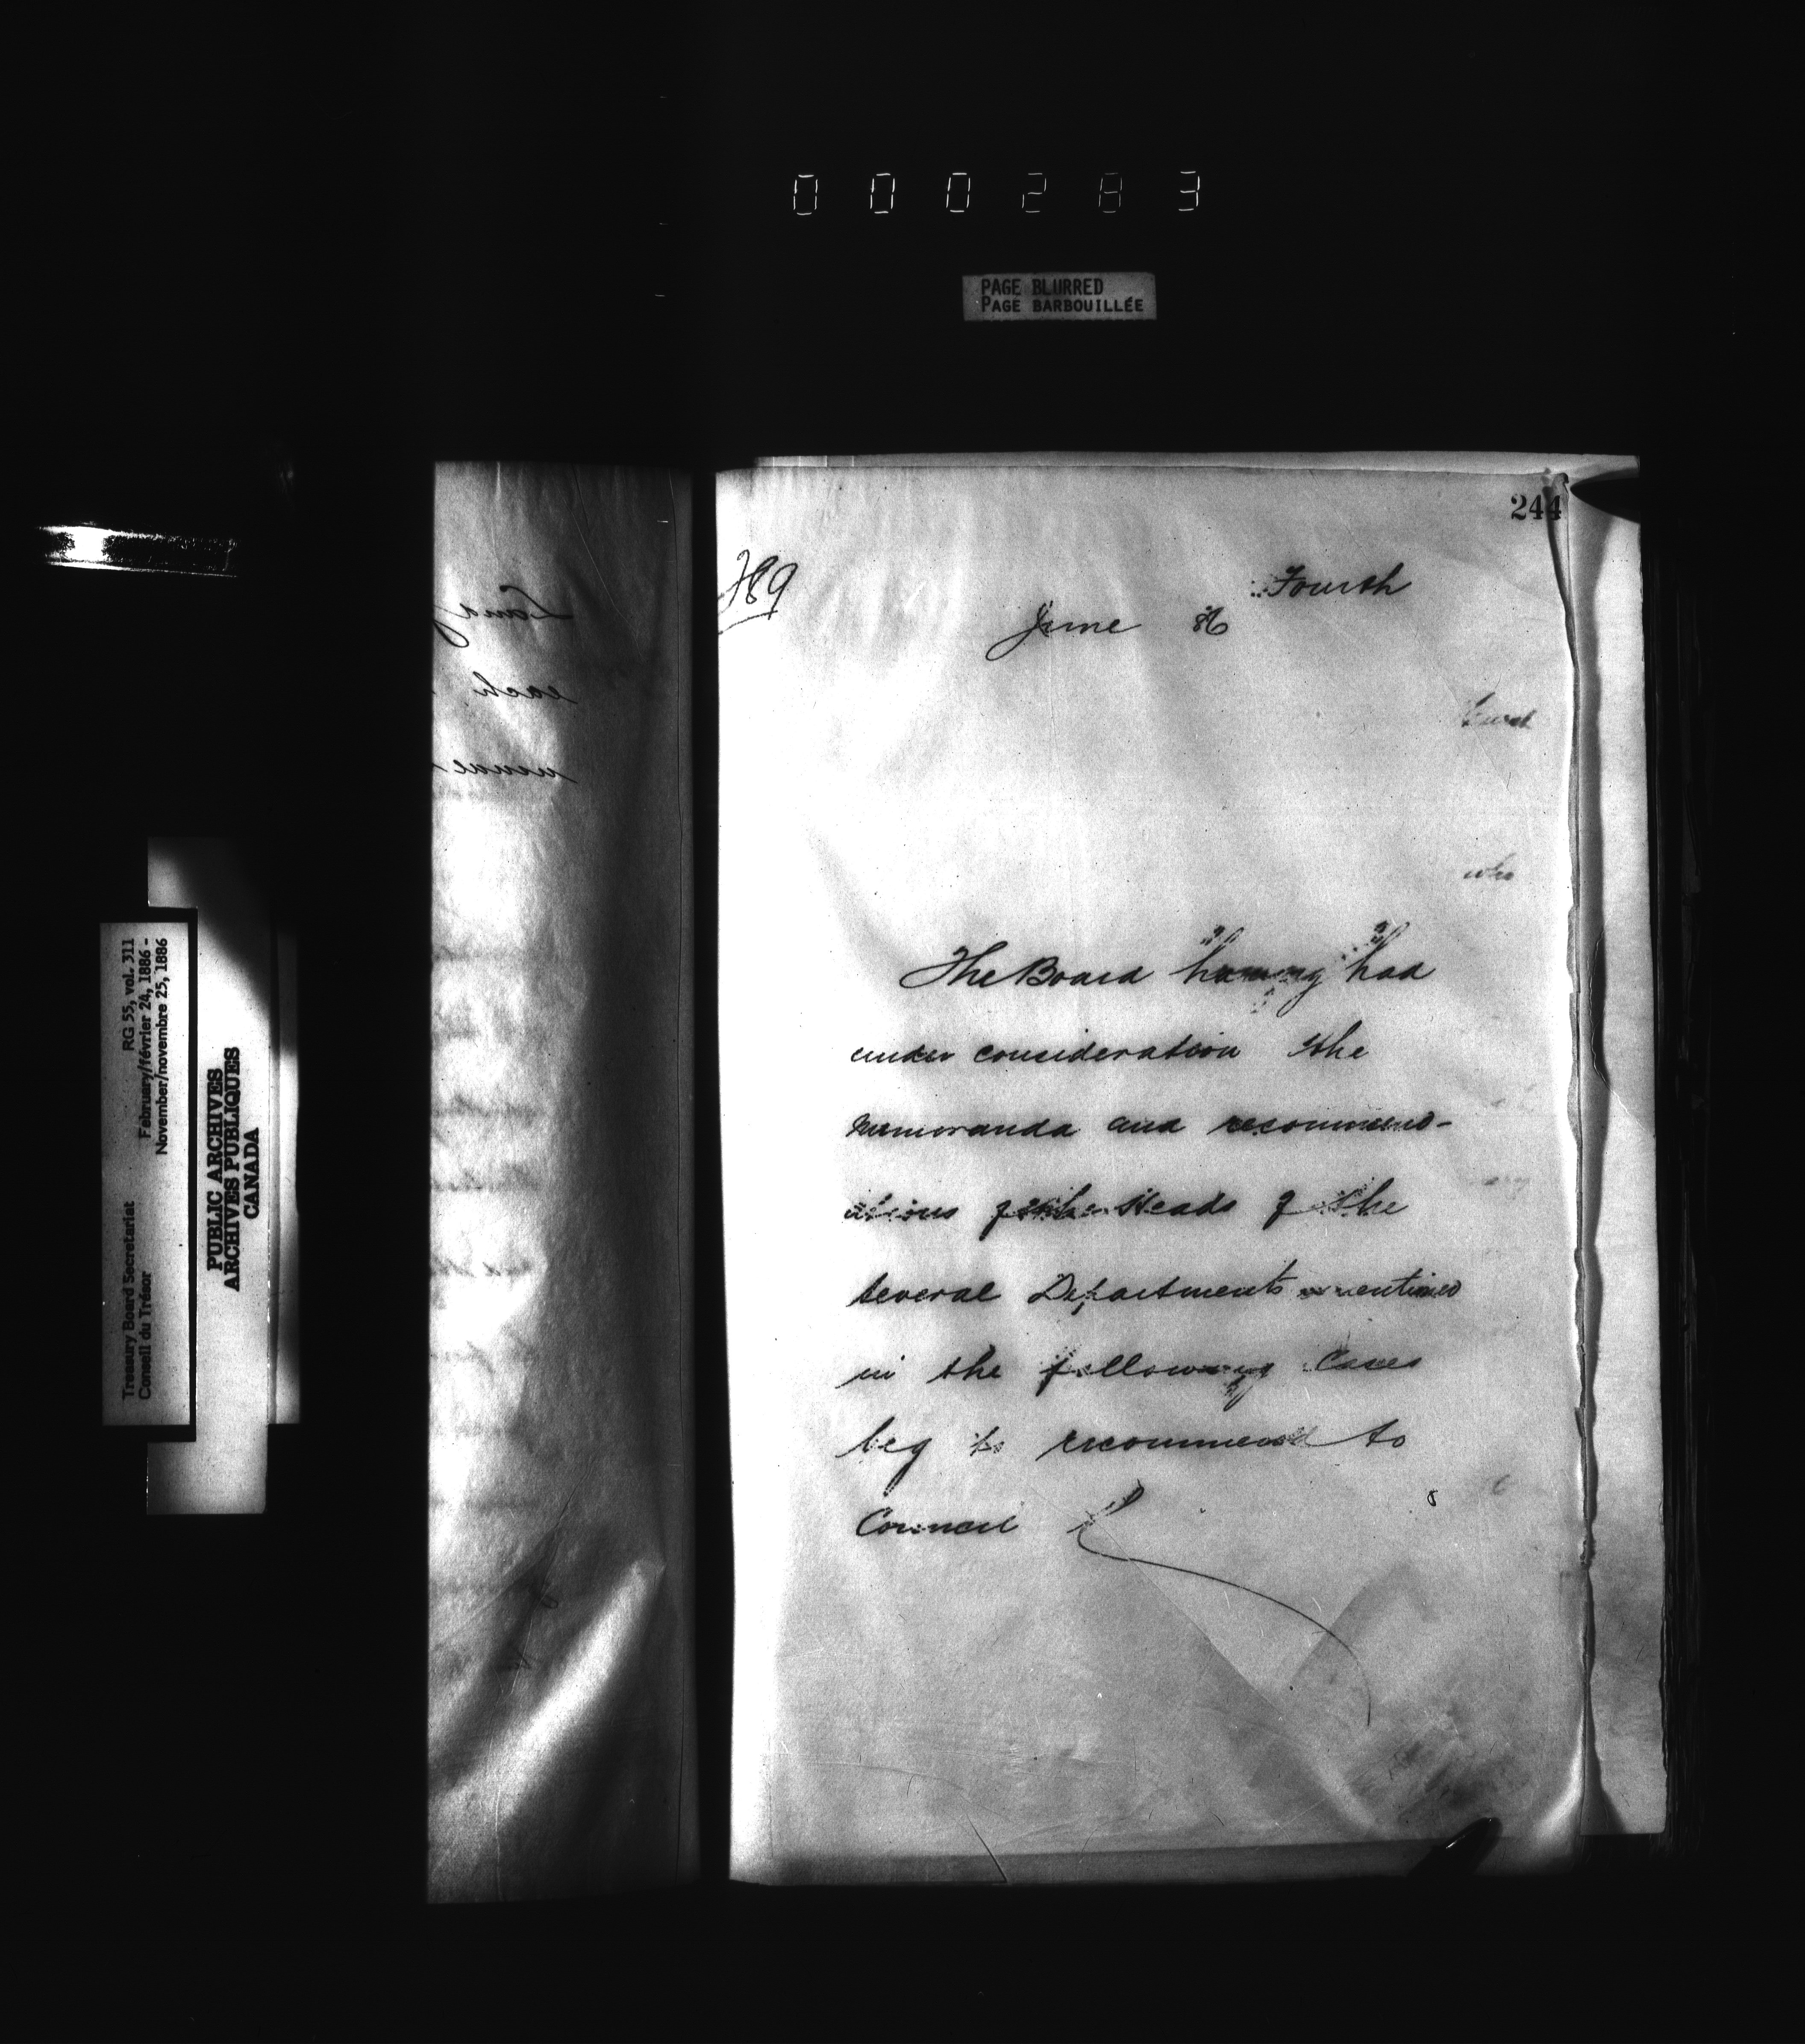 000283
PAGE BLURRED
PAGE BARBOUILLÉE
244
789
Fourth
June 86
who
The Board having had
under consideration the
memoranda and recommend-
ations of the Heads of the
several Departments mentioned
in the following Cases
beg to recommend to
Council
Treasury Board Secretariat RG 55, vol. 311
Conseil du Trésor February/février 24, 1886 -
November/novembre 25, 1886
PUBLIC ARCHIVES
ARCHIVES PUBLIQUES
CANADA
each